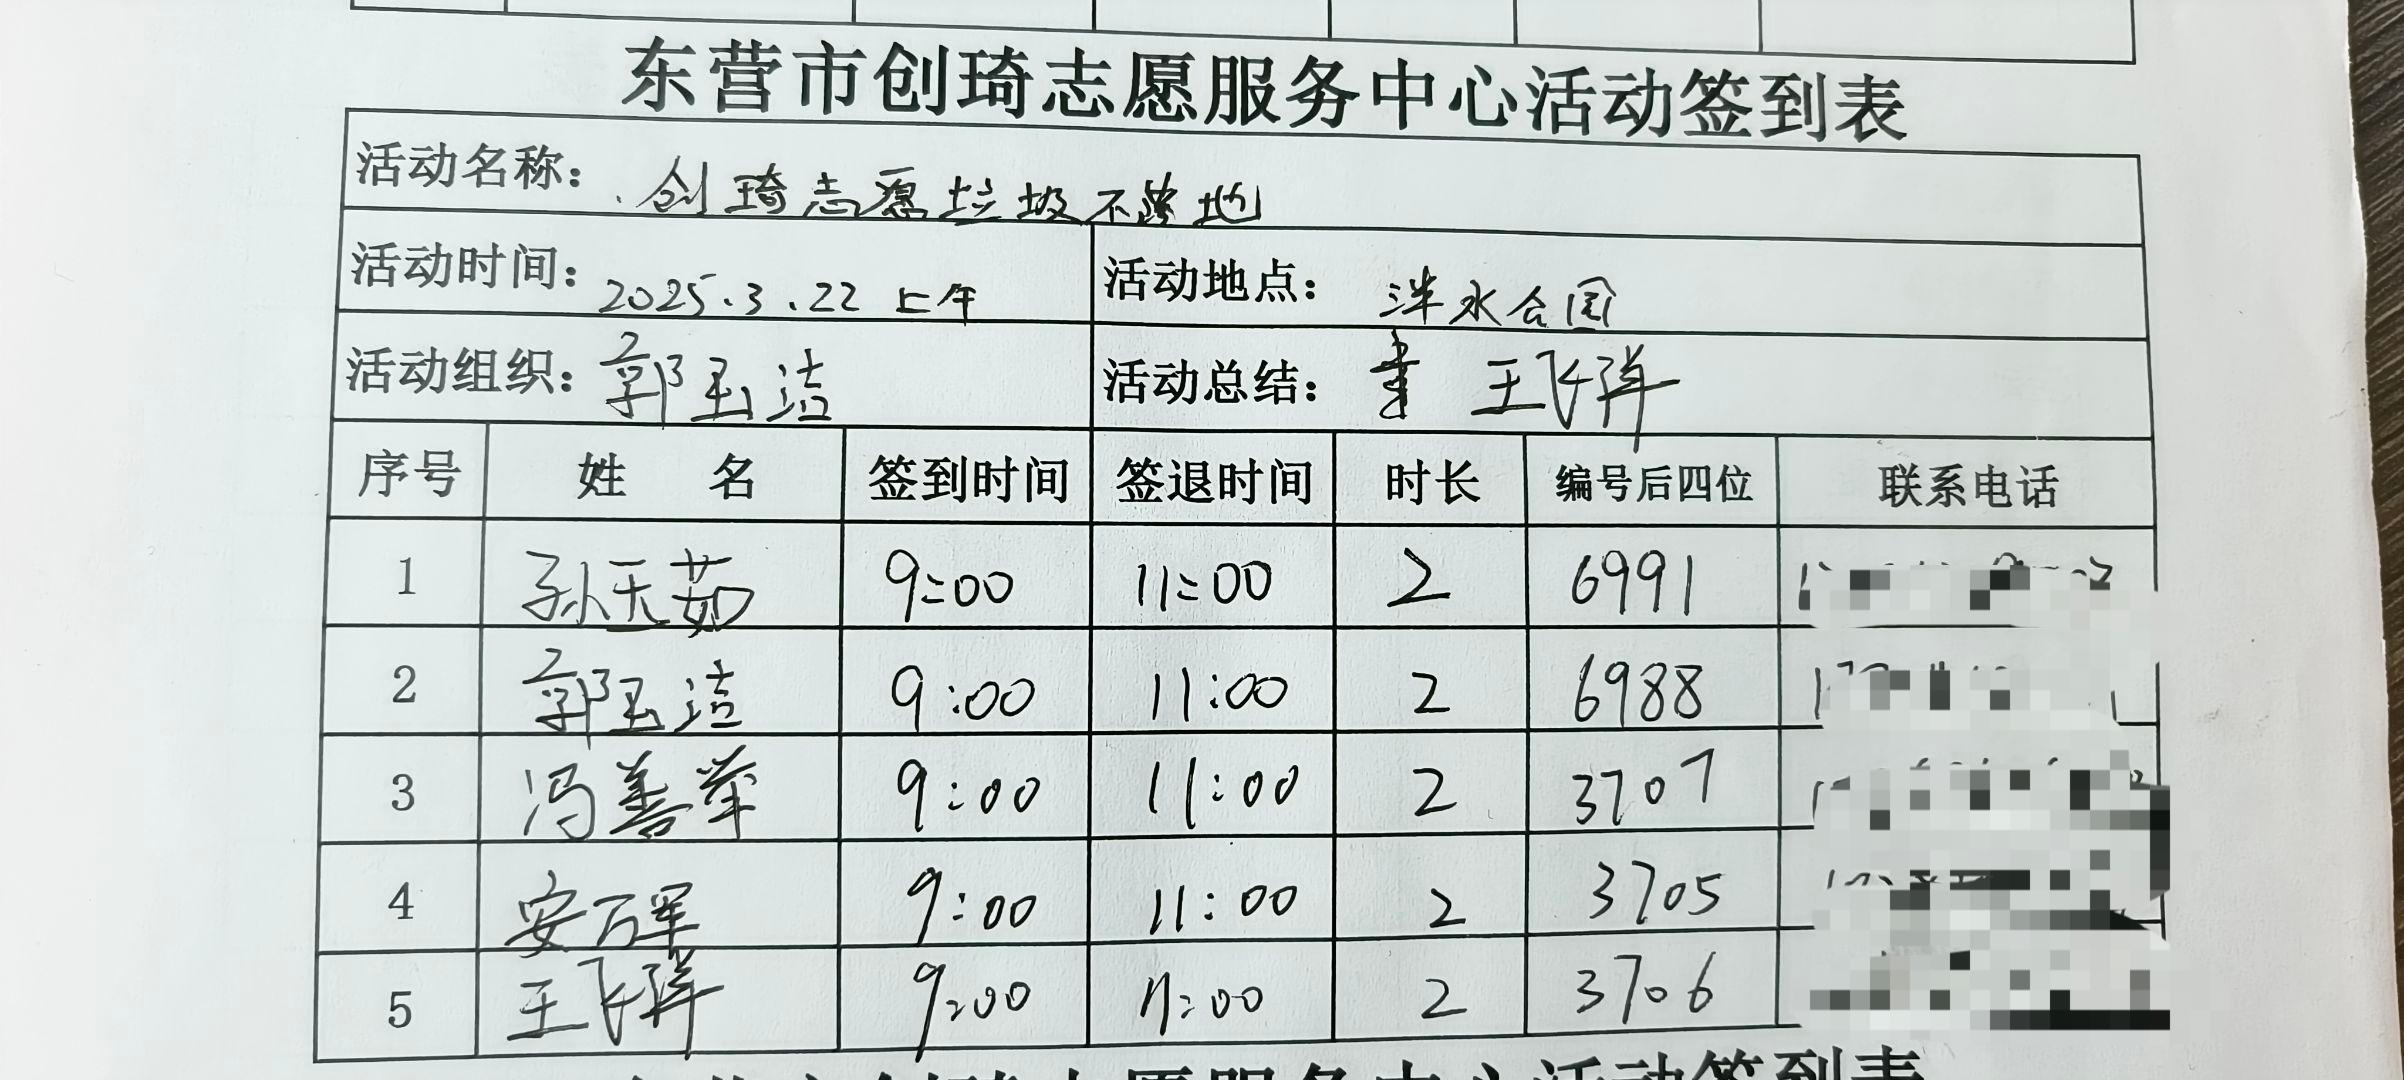 东营市创琦志愿服务中心活动签到表
活动名称：创琦志愿垃圾不落地
活动时间：2025.3.22 上午 活动地点：泮水公园
活动组织：郭玉洁 活动总结：王飞洋
序号 姓 名 签到时间 签退时间 时长 编号后四位 联系电话
1 孙天茹 9:00 11:00 2 6991
2 郭玉洁 9:00 11:00 2 6988
3 冯善举 9:00 11:00 2 3707
4 安万军 9:00 11:00 2 3705
5 王飞洋 9:00 11:00 2 3706
东营市创琦志愿服务中心活动签到表